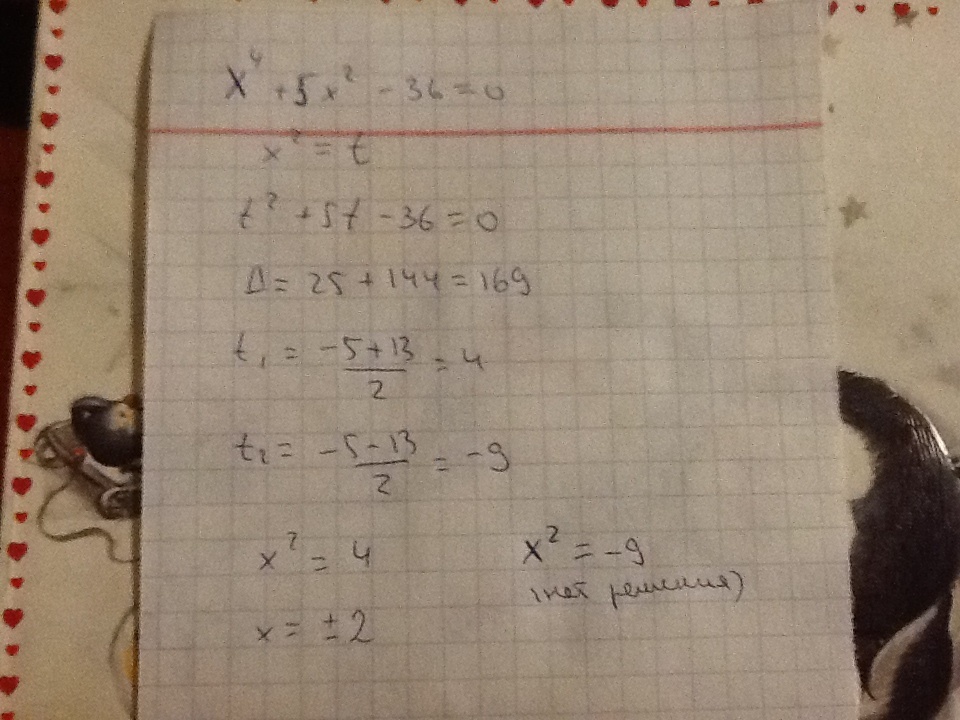 x⁴ + 5x² - 36 = 0
x² = t
t² + 5t - 36 = 0
D = 25 + 144 = 169
t₁ = (-5+13)/2 = 4
t₂ = (-5-13)/2 = -9
x² = 4 x² = -9
(нет решения)
x = ±2